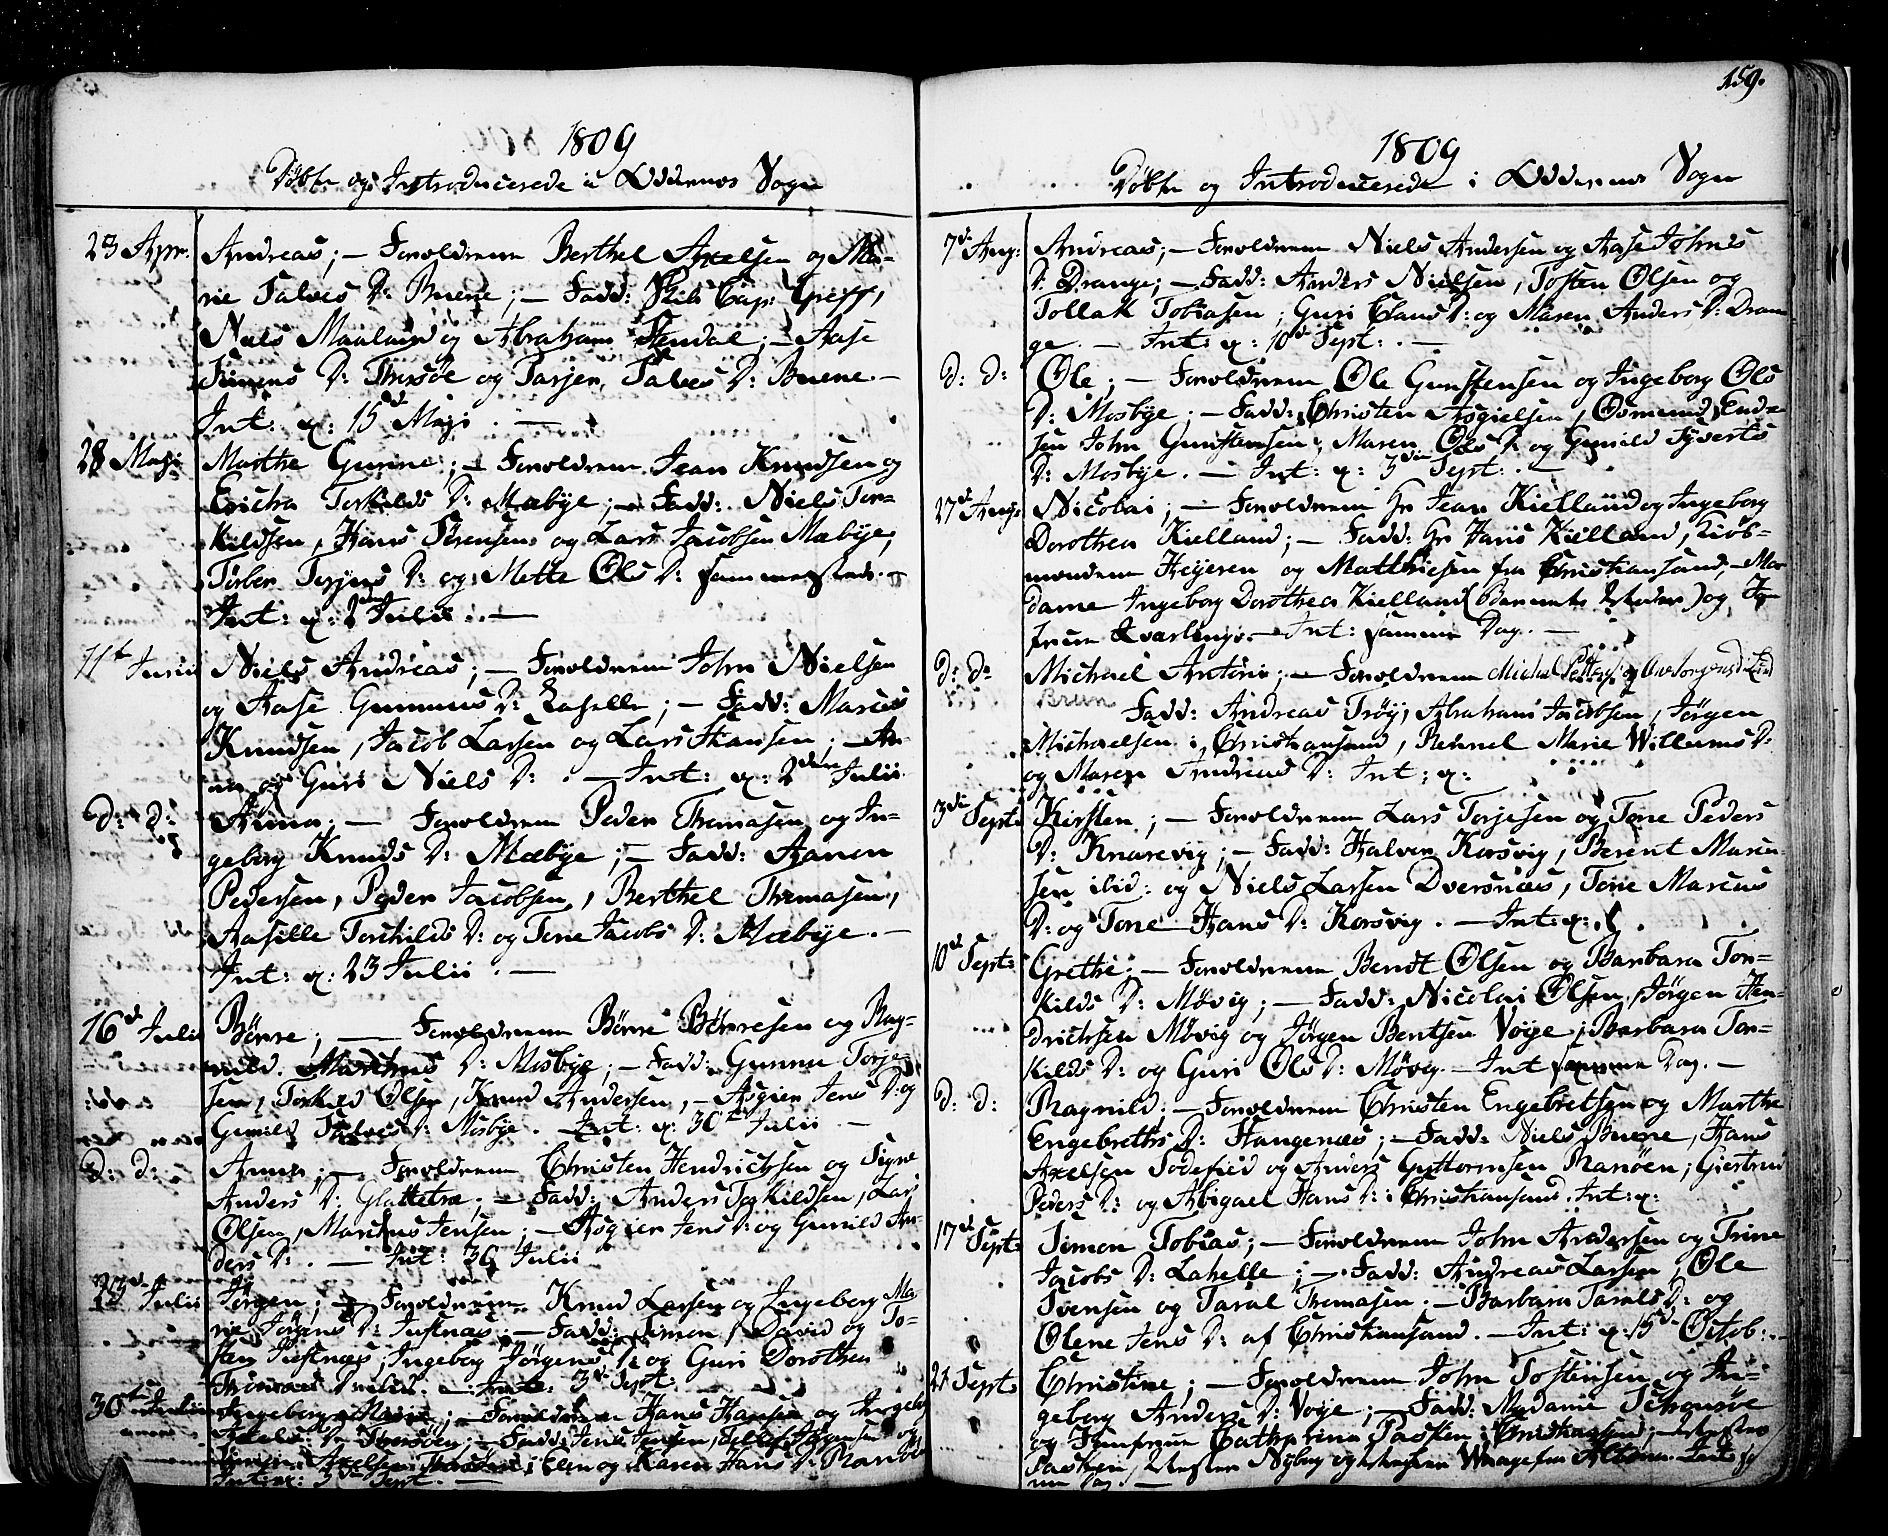 1809
Döbte og Introducerede i Oddernes Sogn
23 Apr. Andreas; — Forældrene Berthel Axelsen og Ma-
rie Salves D: Buene; — Fadd: Skib Cap: Greiff,
Niels Maaland og Abraham Stendal; — Aase
D: Thersöe og Tarjer Salves D: Buene. —
Int: x: 15d Maji. —
28 Maji Marthe Gurine; — Forældrene Jean Knudsen og
Ericha Torkilds D: Mæbye; — Fadd: Niels Tor-
kildsen, Hans Sörensen og Lars Jacobsen Mæbye;
Torber Torjus D: og Mette Ols D: sammesteds. —
Int: x: 2den Julii. —
11t Junii Niels Andreas; — Forældrene John Nielsen
og Aase Gunnus D: Lahelle; — Fadd: Marcus
Knudsen, Jacob Larsen og Lars Hansen; — An-
na og Guri Niels D: . — Int: x: 2den Julii.
D: D: Anna; — Forældrene Peder Thomasen og In-
geborg Knuds D: Mæbye; — Fadd: Aanen
Pedersen, Peder Jacobsen, Berthel Thomasen,
Aasille Torchilds D: og Tone Jacobs D: Mæbye. —
Int: x: 23 Julii. —
16d Julii Börre; — Forældrene Börre Börresen og Rag-
nild Marthus D: Mosbye; — Fadd: Gunnu Torje-
sen, Torkild Olsen, Knud Andersen, — Asgier Jens D: og
Gunild Salves D: Mosbye. Int: x: 30te Julii. —
D: D: Anna; — Forældrene Christen Hendrichsen og Signe
Anders D: Glattetræ; — Fadd: Anders Torkildsen, Lars
Olsen, Marthus Jensen; — Asgier Jens D: og Gunild An-
ders D: . — Int: 30 Julii
23d Julii Jörgen; — Forældrene Knud Larsen og Ingeborg Ma-
rie Jörgens D: Justnæs; — Fadd: Simon, David og To-
sten Justnæs; Ingeborg Jörgens D: og Guri Dorothea
D: ibid. — Int: 3d Sept:
30te Julii Ingeborg Marie; — Forældrene Hans Hansen og Ingeborg
D: Thersöen; — Fadd: Jens Jensen, Hansen og
Axelsen; Elen og Karen Hans D: Randöe
Int: x: 3d Sept. —
159.
1809
Döbte og Introducerede i Oddernes Sogn
7d Aug: Andreas; — Forældrene Niels Andersen og Aase Johnes
D: Drange; — Fadd: Anders Nielsen, Tosten Olsen og
Tollak Tobiasen; Guri Claus D: og Maren Anders D: Dran-
ge. — Int: x: 10d Sept: . —
D: D: Ole; — Forældrene Ole Gunstensen og Ingeborg Ols
D: Mosbye; — Fadd: Christen Asgielsen, Osmund End-
sen John Gunstensen; Maren Ols D: og Gunild Syverts
D: Mosbye. — Int: x: 3die Sept: . —
27d Aug: Nicolai; — Forældrene Hr Jean Kielland og Ingeborg
Dorothea Kielland; — Fadd: Hr Hans Kielland, Kiöb-
mændene Heyeren og Matthiesen fra Christiansand; — Ma-
dame Ingeborg Dorothea Kielland (Barnets Moder) og Jom-
fruen Qvarlings. — Int: samme Dag. —
D: D: Michael Antoni; — Forældrene Michel Petters og Ane Jorgensd: Lund
Brun
Fadd: Andreas Tröy, Abraham Jacobsen, Jörgen
Michaelsen i Christiansand, Rennel Marie Willums D:
og Maren Andreas D: Int: x:
3die Sept: Kirsten; — Forældrene Lars Torjesen og Tone Peders
D: Knarevig; — Fadd: Halvor Korsvig, Berent Marcu-
sen ibid: og Niels Larsen Dversnæs, Tone Marcus
D: og Tone Hans D: Korsvig. — Int: x:
10d Sept: Grethe; — Forældrene Bendt Olsen og Barbara Tor-
kilds D: Mövig; — Fadd: Nicolai Olsen, Jörgen Hen-
drichsen Mövig og Jörgen Bentsen Voye; Barbara Tor-
kilds D: og Guri Ols D: Mövig. — Int samme Dag. —
D: D: Ragnild; — Forældrene Christen Engebretsen og Marthe
Engebreths D: Stangenæs; — Fadd: Niels Buene, Hans
Axelsen Sodefied og Anders Guttormsen Randöen; Giertrud
Peders D: og Abigael Hans D: Christiansand. Int: x:
17d Sept: Simon Tobias; — Forældrene John Andersen og Trine
Jacobs D: Lahelle; — Fadd: Andreas Larsen, Ole
Svensen og Taral Thomasen. — Barbara Tarals D: og
Olene Jens D: af Christiansand. — Int: x: 15d Octob: . —
21 Sept: Christine; — Forældrene John Tostensen og In-
geborg Anders D: Voye; — Fadd: Madame
og Jomfrue Catharina Pasken Christiansand;
Pasken, Nyborg og Waage fra Int: sa-
me Dag. —